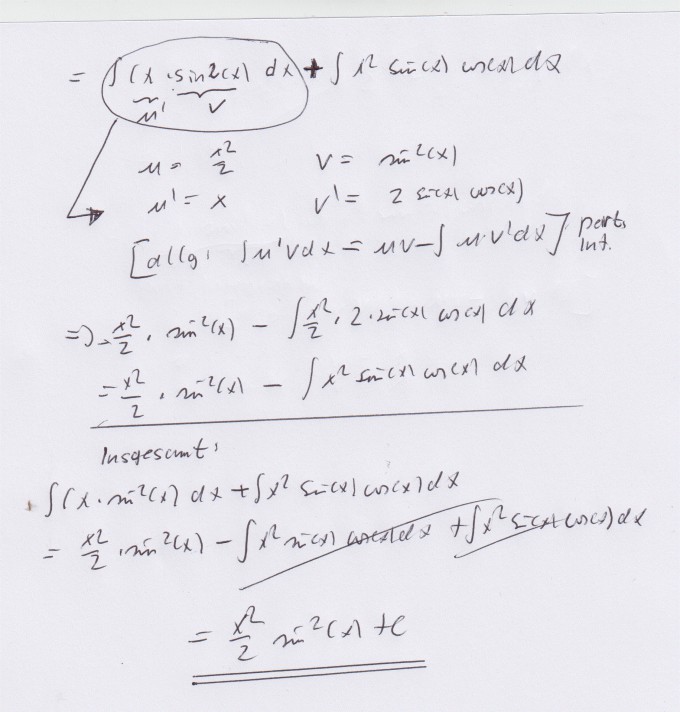 = ∫ (x · sin²(x) dx + ∫ x² sin(x) cos(x) dx
u' v
u = x²/2 v = sin²(x)
u' = x v' = 2 sin(x) cos(x)
[allg. ∫ u'v dx = uv - ∫ u·v' dx] part. Int.
=> x²/2 · sin²(x) - ∫ x²/2 · 2 · sin(x) cos(x) dx
= x²/2 · sin²(x) - ∫ x² sin(x) cos(x) dx
Insgesamt:
∫ (x · sin²(x) dx + ∫ x² sin(x) cos(x) dx
= x²/2 · sin²(x) - ∫ x² sin(x) cos(x) dx + ∫ x² sin(x) cos(x) dx
= x²/2 sin²(x) + C